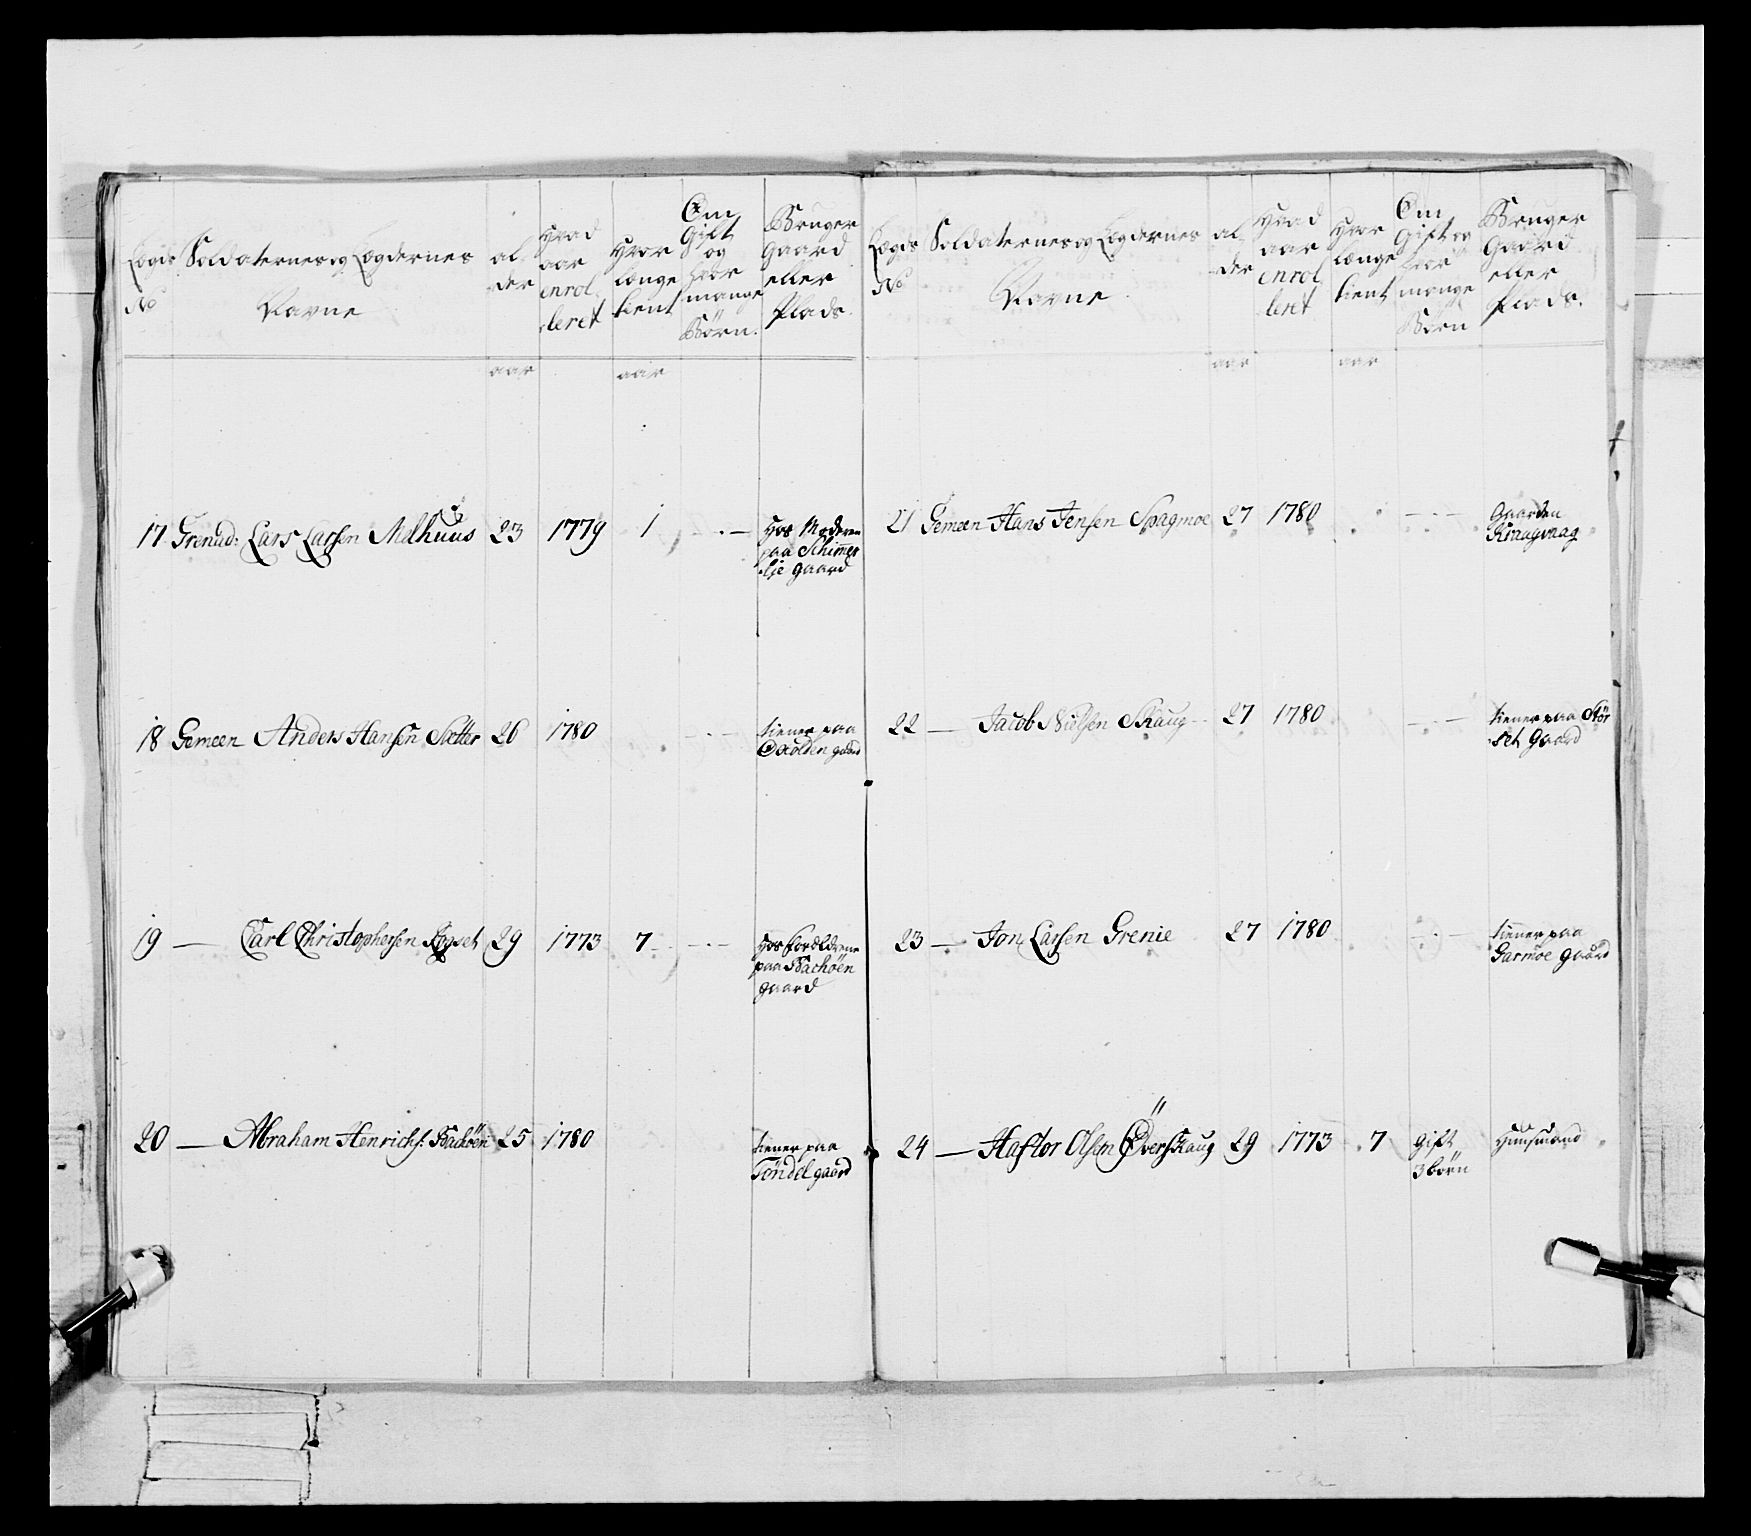 Lægds No
Soldaternes og Lægdernes Navne
al-der
Hvad aar enrol-leret
Hvor længe tient
Om Gift og hvor mange Börn.
Bruger Gaard eller Plads.
aar aar
17 Grenad: Lars Larsen Melhuus 23 1779 1 - . - Hos Moderen
paa Schimer
lie gaard
18 Gemeen Anders Hansen Sætter 26 1780 - . - tiener paa
Oxolden gaard
19 — Carl Christophersen Rogset 29 1773 7 - . - Hos Forældrene
paa Bachöen
gaard
20 — Abraham Henrichs: Bachöen 25 1780 tiener paa
Töndel gaard
Lægds No
Soldaternes og Lægdernes Navne
al-der
Hvad aar enrol-leret
Hvor længe tient
Om Gift og hvor mange Börn
Bruger Gaard eller Plads.
aar aar
21 Gemeen Hans Jensen Spagmoe 27 1780 - . - Gaarden
Kraagvaag
22 — Jacob Nielsen Skaug 27 1780 - . - tiener paa Stör
set Gaard
23 — Jon Larsen Grenie 27 1780 - . - tiener paa
Garmoe gaard
24 — Haftor Olsen Överskaug 29 1773 7 gift
3 börn
Huusmand